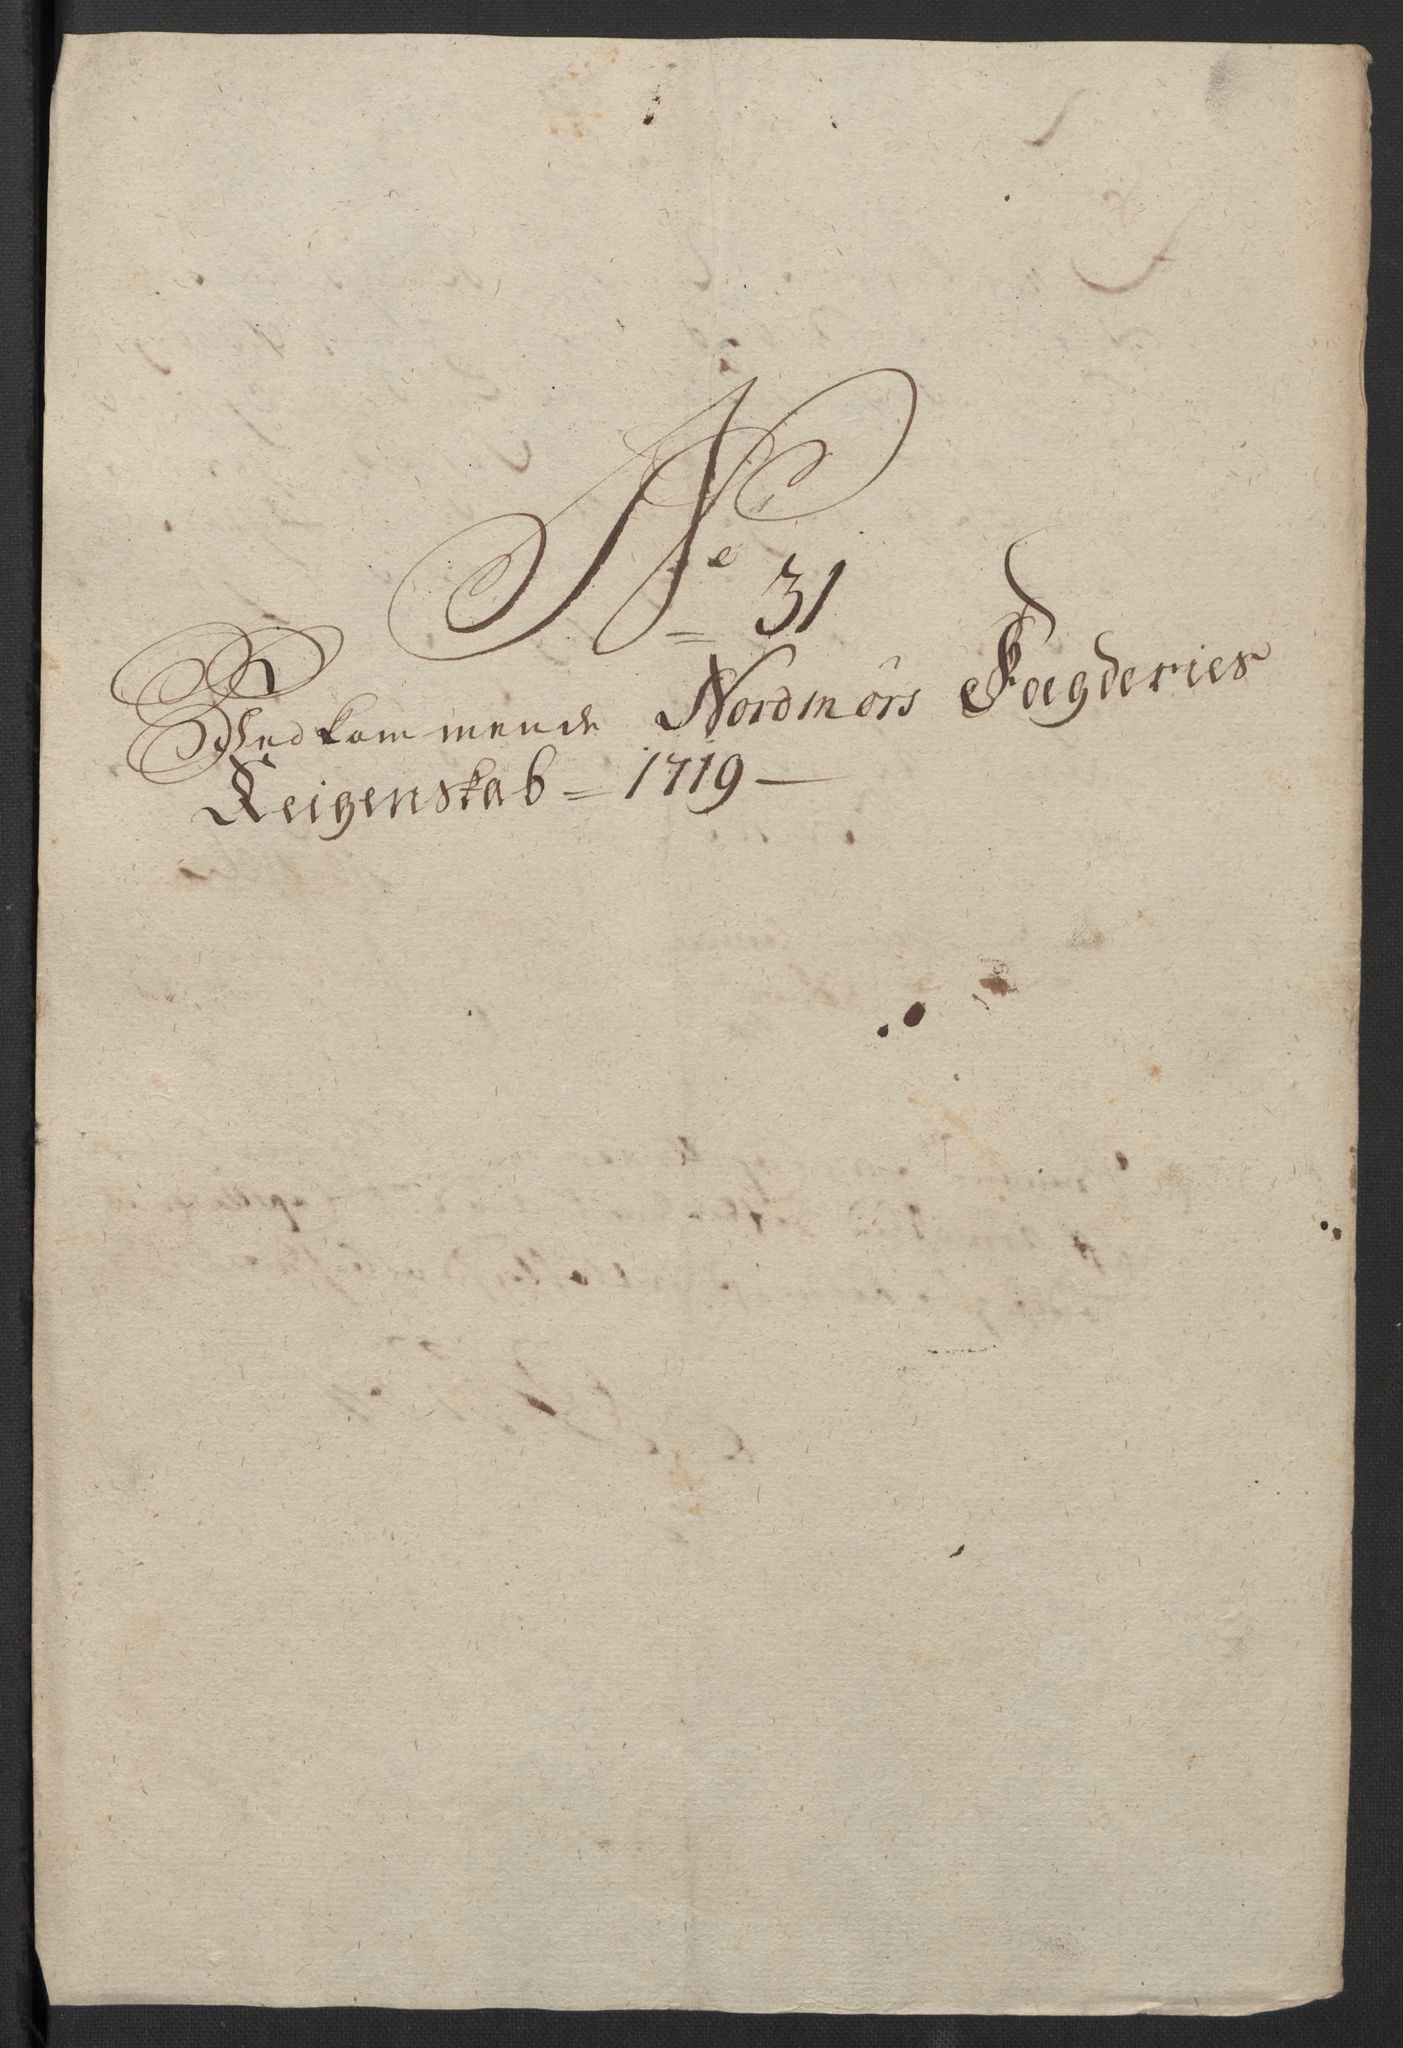 Ne 31
Vedkommende Nordmørs Fogderies
Reigenskab = 1719 —